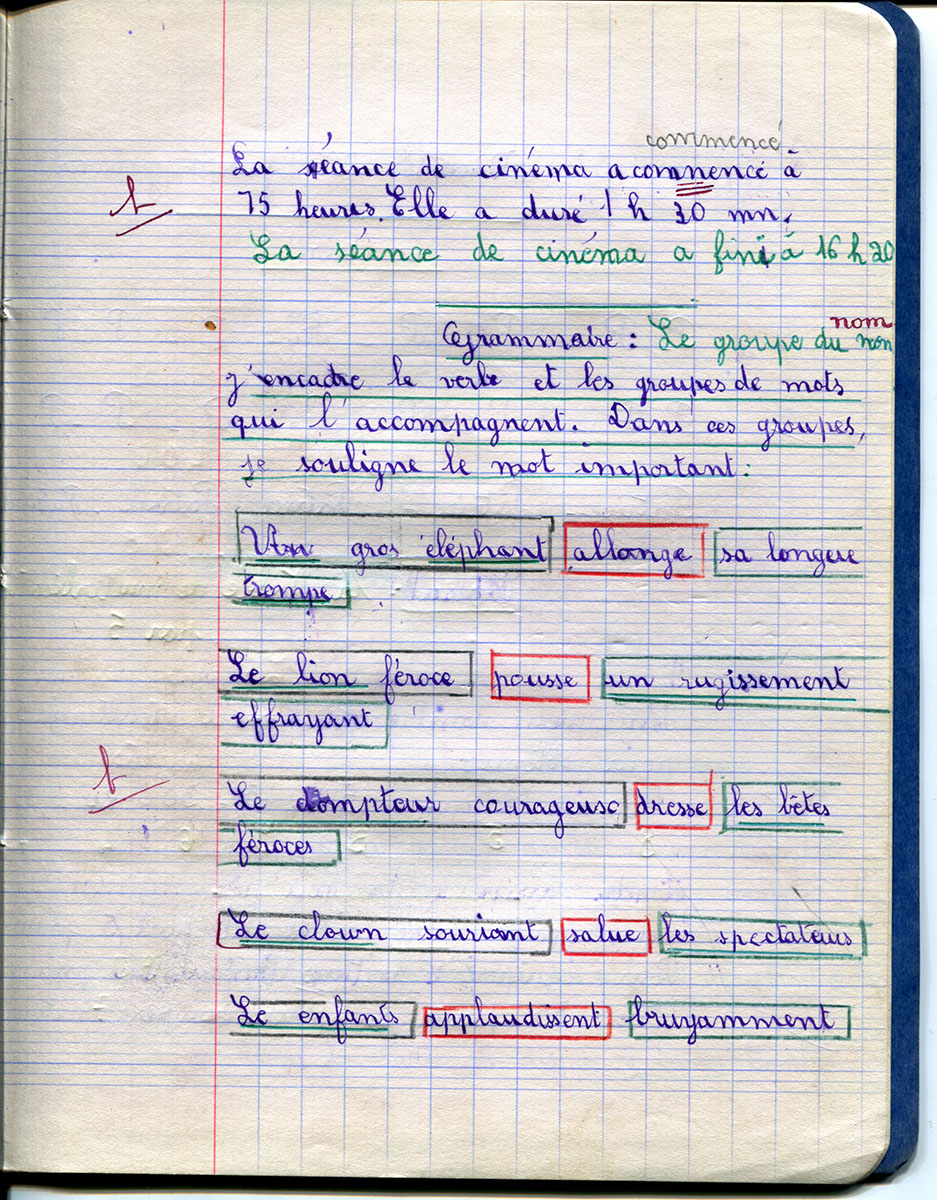 commencé
La séance de cinéma a comnencé à
15 heures. Elle a duré 1 h 20 mn.
La séance de cinéma a fini à 16 h 20
nom
Grammaire : Le groupe du non
j'encadre le verbe et les groupes de mots
qui l'accompagnent. Dans ces groupes,
je souligne le mot important :
Un gros éléphant allonge sa longue
trompe
Le lion féroce pousse un rugissement
effrayant
Le dompteur courageuse dresse les bêtes
féroces
Le clown souriant salue les spectateurs
Le enfants applaudissent bruyamment
b
b